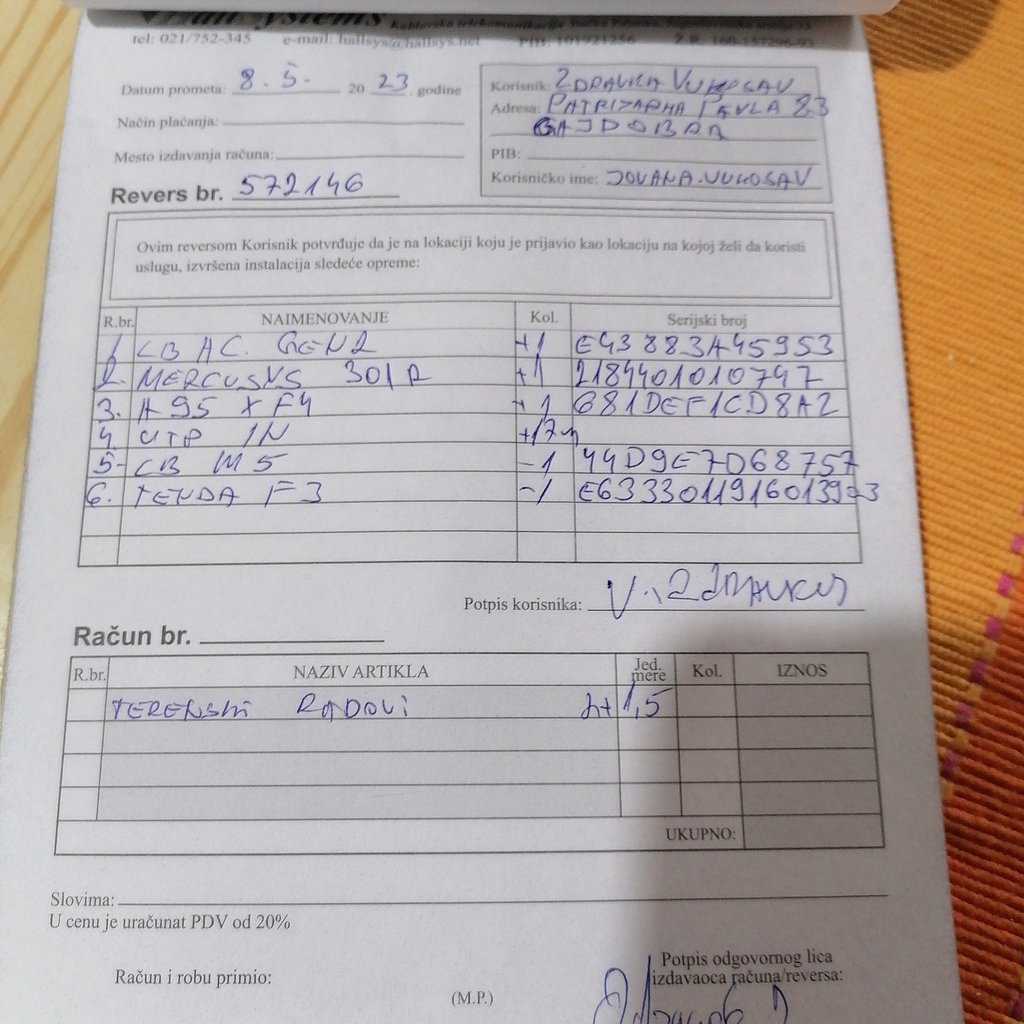 Systems kablovska telekomunikacija
tel: 021/752-345 e-mail: hallsys@hallsys.net PIB: 101921256
Datum prometa: 8. 5. 20 23 godine
Način plaćanja:
Mesto izdavanja računa:
Revers br. 572146
Korisnik: ZDRAVKA VUKOSAV
Adresa: PATRIJARHA PAVLA 83
GAJDOBRA
PIB:
Korisničko ime: JOVANA.VUKOSAV
Ovim reversom Korisnik potvrđuje da je na lokaciji koju je prijavio kao lokaciju na kojoj želi da koristi
uslugu, izvršena instalacija sledeće opreme:
R.br. NAIMENOVANJE Kol. Serijski broj
1. LB AC. GEN2 +1 E43883A45953
2. MERCUSYS 301R +1 2184401010747
3. A95 X F4 +1 681DEF1CD8A2
4. UTP IN +17m
5- LB M5 -1 44D9E7068757
6. TENDA F3 -1 E6333011916013903
Potpis korisnika:
Račun br.
R.br. NAZIV ARTIKLA Jed. mere Kol. IZNOS
TERENSKI RADOVI h+ 1,5
UKUPNO:
Slovima:
U cenu je uračunat PDV od 20%
Račun i robu primio:
(M.P.)
Potpis odgovornog lica
izdavaoca računa/reversa: